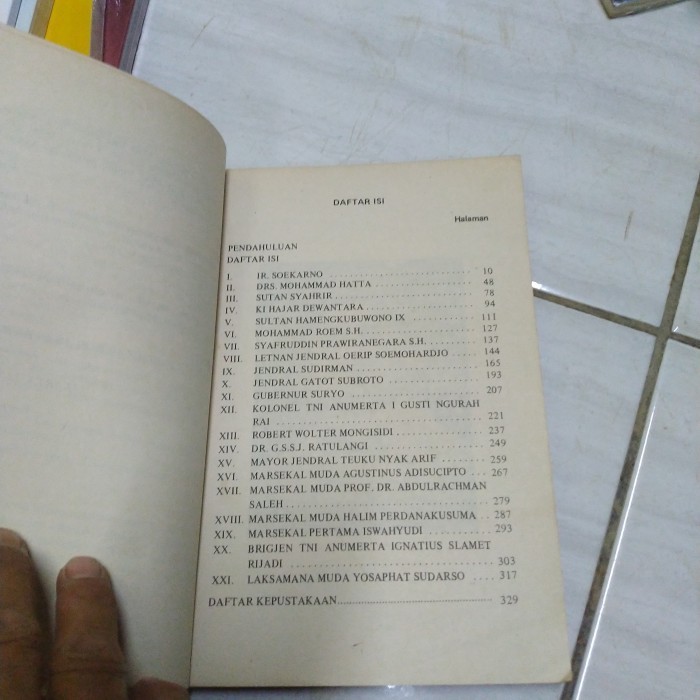 DAFTAR ISI
Halaman
PENDAHULUAN
DAFTAR ISI
I. IR. SOEKARNO . . . . . . . . . . . . . . . . . . . . . . . 10
II. DRS. MOHAMMAD HATTA . . . . . . . . . . . . . . . . 48
III. SUTAN SYAHRIR . . . . . . . . . . . . . . . . . . . . . . 78
IV. KI HAJAR DEWANTARA . . . . . . . . . . . . . . . . . 94
V. SULTAN HAMENGKUBUWONO IX . . . . . . . . . . . 111
VI. MOHAMMAD ROEM S.H. . . . . . . . . . . . . . . . . . 127
VII. SYAFRUDDIN PRAWIRANEGARA S.H. . . . . . . . . 137
VIII. LETNAN JENDRAL OERIP SOEMOHARDJO . . . . . 144
IX. JENDRAL SUDIRMAN . . . . . . . . . . . . . . . . . . . 165
X. JENDRAL GATOT SUBROTO . . . . . . . . . . . . . . . 193
XI. GUBERNUR SURYO . . . . . . . . . . . . . . . . . . . . 207
XII. KOLONEL TNI ANUMERTA I GUSTI NGURAH
RAI . . . . . . . . . . . . . . . . . . . . . . . . . . . . . . 221
XIII. ROBERT WOLTER MONGISIDI . . . . . . . . . . . . . 237
XIV. DR. G.S.S.J. RATULANGI . . . . . . . . . . . . . . . . 249
XV. MAYOR JENDRAL TEUKU NYAK ARIF . . . . . . . 259
XVI. MARSEKAL MUDA AGUSTINUS ADISUCIPTO . . . 267
XVII. MARSEKAL MUDA PROF. DR. ABDULRACHMAN
SALEH . . . . . . . . . . . . . . . . . . . . . . . . . . . . 279
XVIII. MARSEKAL MUDA HALIM PERDANAKUSUMA . . 287
XIX. MARSEKAL PERTAMA ISWAHYUDI . . . . . . . . . 293
XX. BRIGJEN TNI ANUMERTA IGNATIUS SLAMET
RIJADI . . . . . . . . . . . . . . . . . . . . . . . . . . . . 303
XXI. LAKSAMANA MUDA YOSAPHAT SUDARSO . . . . 317
DAFTAR KEPUSTAKAAN . . . . . . . . . . . . . . . . . . . . 329